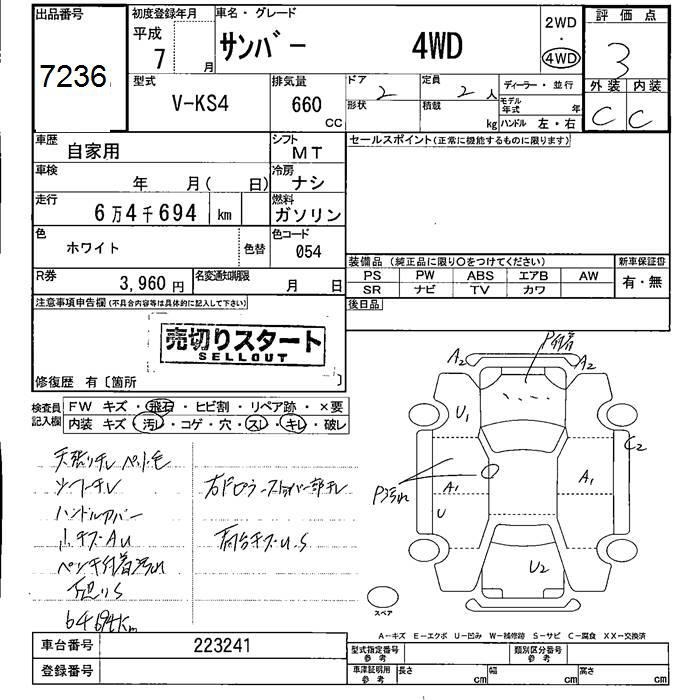 出品番号 初度登録年月 車名・グレード 2WD 評価点
7236 平成 7 月 サンバー 4WD ・ 4WD 3
型式 V-KS4 排気量 660 CC ドア 2 定員 2 人 ディーラー・並行 外装 内装
形状 積載 kg モデル年式 年 ハンドル 左・右 C C
車歴 自家用 シフト MT セールスポイント(正常に機能するものに限ります)
車検 年 月( 日) 冷房 ナシ
走行 6万4千694 km 燃料 ガソリン
色 ホワイト 色替 色コード 054
装備品 (純正品に限り○をつけてください) 新車保証書
R券 3,960円 名変通知期限 月 日 PS PW ABS エアB AW 有・無
SR ナビ TV カワ
注意事項申告欄(不具合内容等は具体的に記入して下さい) 後日品
売切りスタート
SELLOUT
修復歴 有〔箇所 〕
検査員 FW キズ・飛石・ヒビ割・リペア跡・×要
記入欄 内装 キズ・汚レ・コゲ・穴・スレ・キレ・破レ
A2 A2
U1 C2
A1 A1
U
U2
ハンドルカバー
小キズ・AU
64694km
スペア
A－キズ E－エクボ U－凹み W－補修跡 S－サビ C－腐食 XX－交換済
車台番号 223241 型式指定番号 参考 類別区分番号 参考
登録番号 車庫証明用 参考 長さ cm 幅 cm 高さ cm